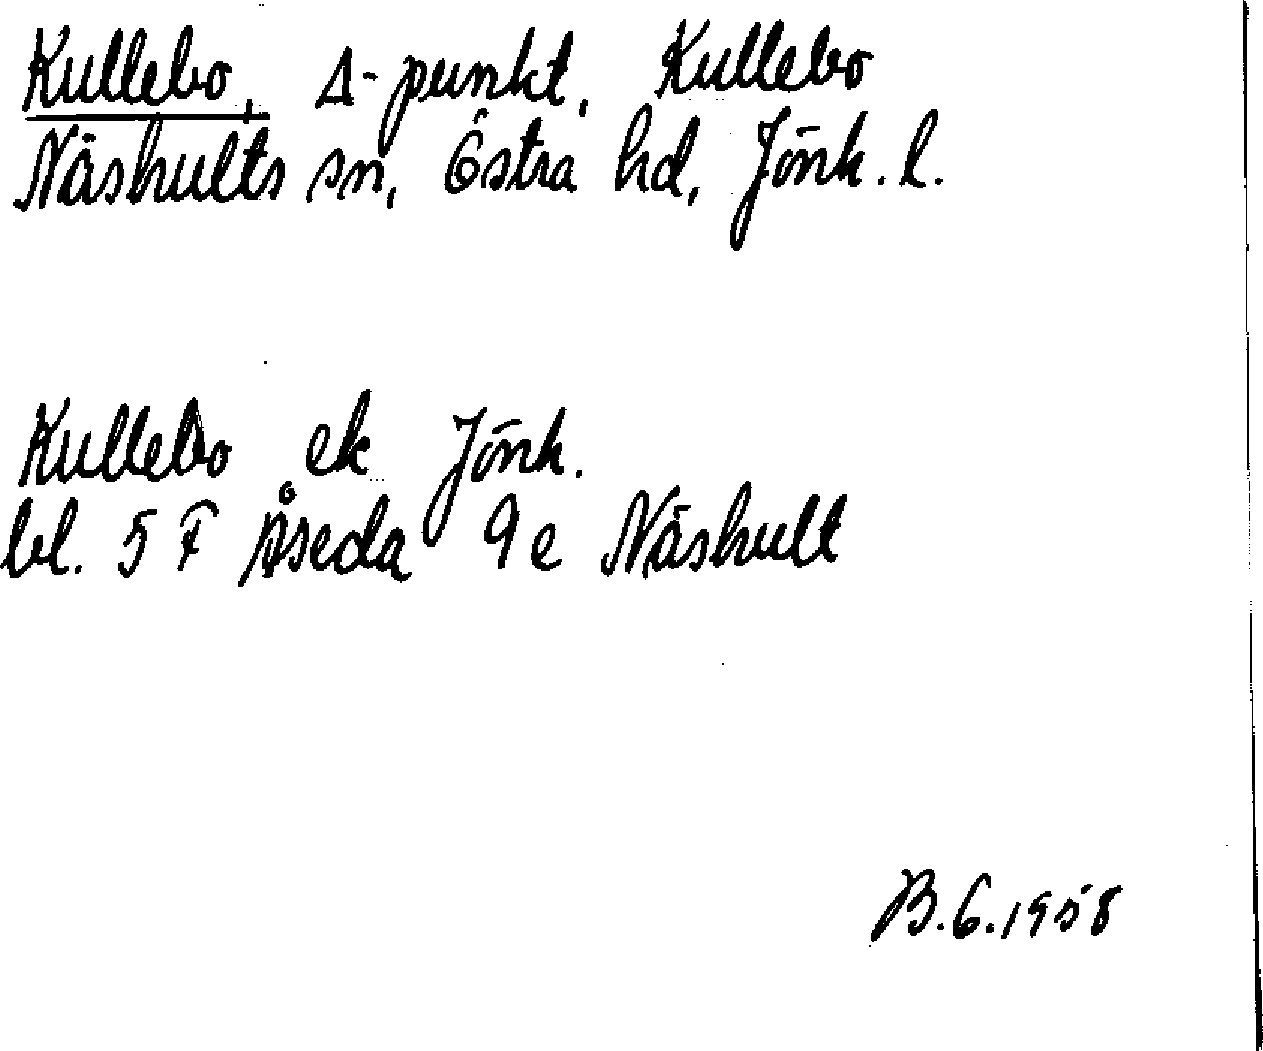 Kullebo, Δ-punkt, Kullebo
Näshults sn, Östra hd, Jönk. l.
Kullebo ek Jönk.
bl. 5 F Åseda 9 e Näshult
B.G. 1958